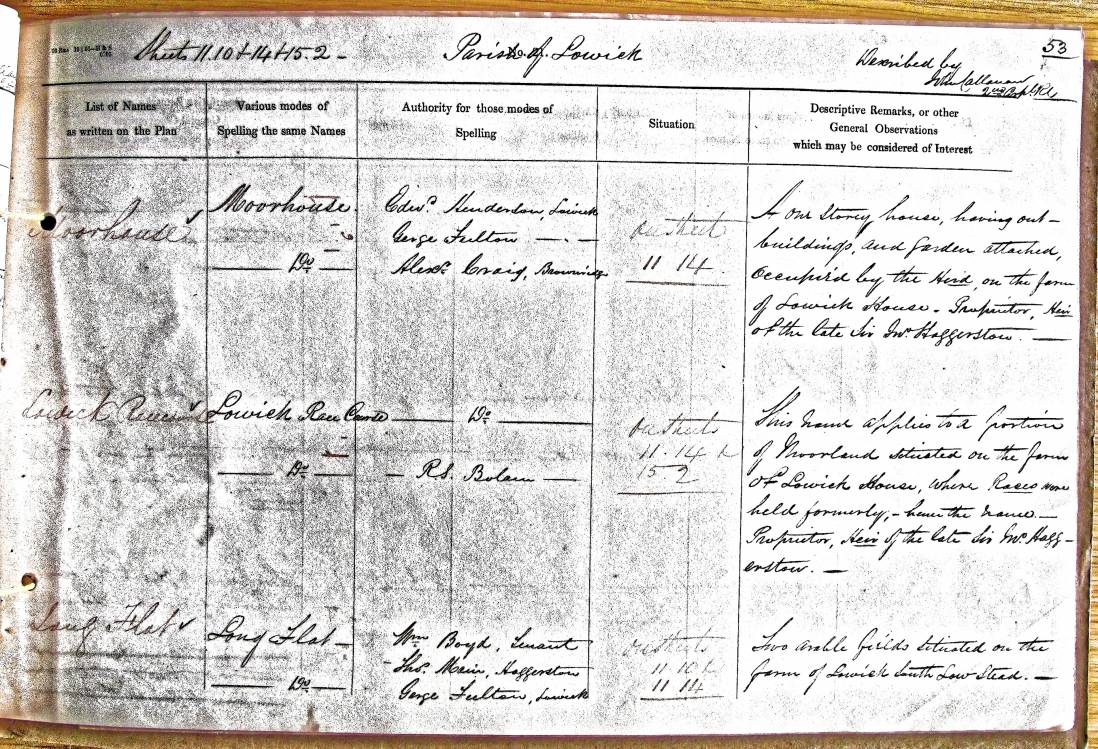 Sheets 11.10 + 14 + 15.2 -
Parish of Lowick
53
Described by
John Callanan
List of Names
as written on the Plan
Various modes of
Spelling the same Names
Authority for those modes of
Spelling
Situation
Descriptive Remarks, or other
General Observations
which may be considered of Interest
Moorhouse
Moorhouse
Do
Edwd. Henderson, Lowick
George Fulton
Alexr. Craig, Brownridge
on sheet
11 14
A one storey house, having out-
buildings, and garden attached,
Occupied by the Herd, on the farm
of Lowick House - Proprietor, Heir
of the late Sir Jno. Haggerston.
Lowick Race
Lowick Race Course
Do
Do
R.S. Bolam
on sheets
11.14 &
15 2
This name applies to a portion
of Moorland situated on the farm
of Lowick House, where Races were
held formerly, - hence the name -
Proprietor, Heir of the late Sir Jno. Hagg-
erston. -
Long Flat
Long Flat -
Do
Wm Boyd, Tenant
Thos. Mair, Haggerston
George Fulton, Lowick
on sheets
11 10 &
11 14
Two arable fields situated on the
farm of Lowick South Low Stead. -